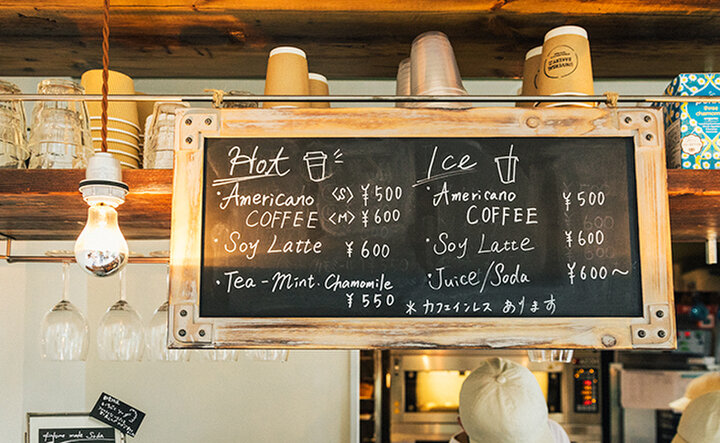 Hot
・Americano <S> ¥500
COFFEE <M> ¥600
・Soy Latte ¥600
・Tea - Mint. Chamomile
¥550
Ice
・Americano
COFFEE ¥500
・Soy Latte ¥600
・Juice/Soda ¥600〜
＊カフェインレス あります
UNIVERSAL
BAKERY
three
chamomile
organic
home made Soda